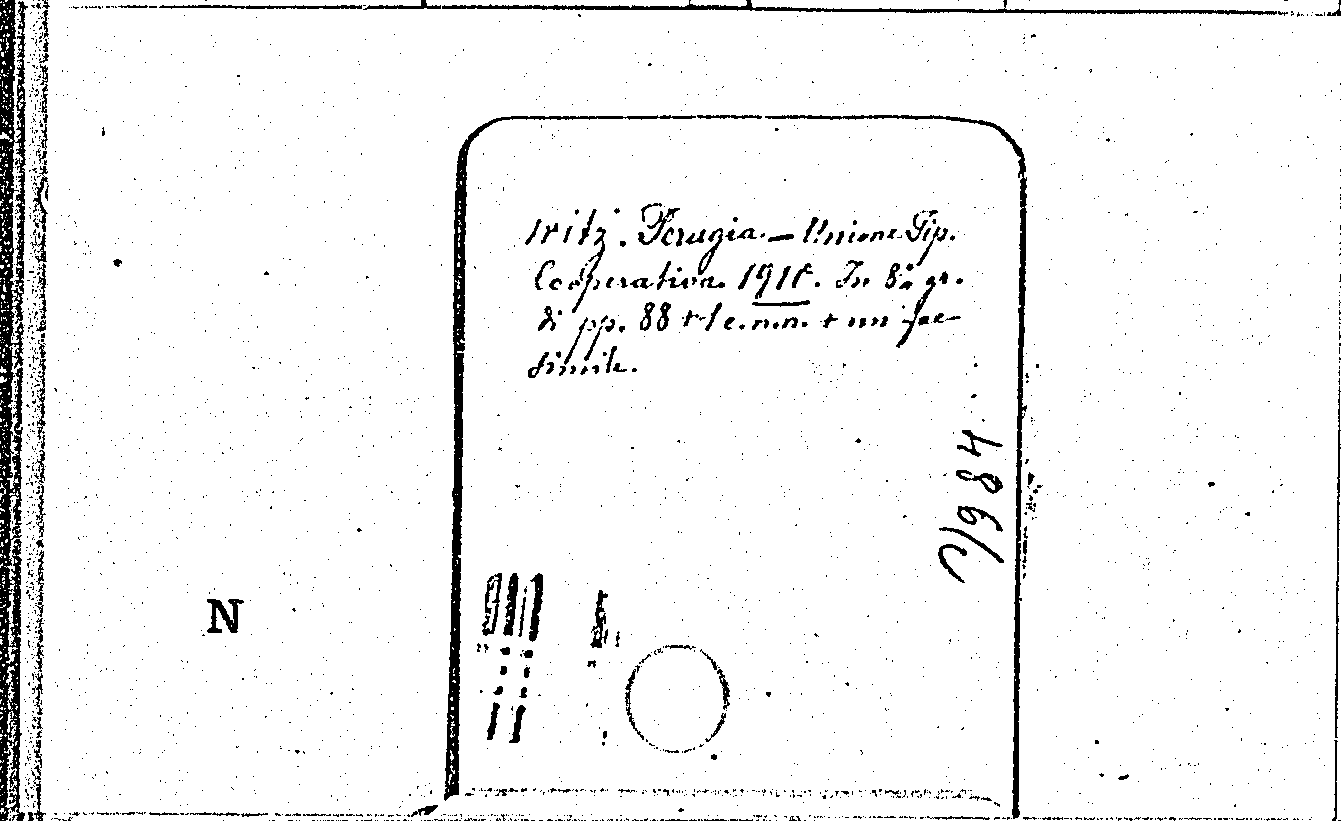 witz. Perugia. — Unione Tip.
Cooperativa. 1910. In 8° gr.
di pp. 88 + 1 c.n.n. + un fac-
simile.
C/984
N